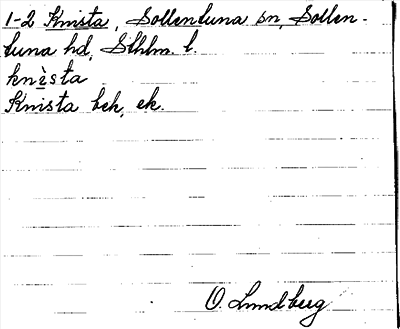 1-2 Knista, Sollentuna sn, Sollen-
tuna hd, Sthlm. l.
knìsta
Knista bch, ek.
O. Lundberg